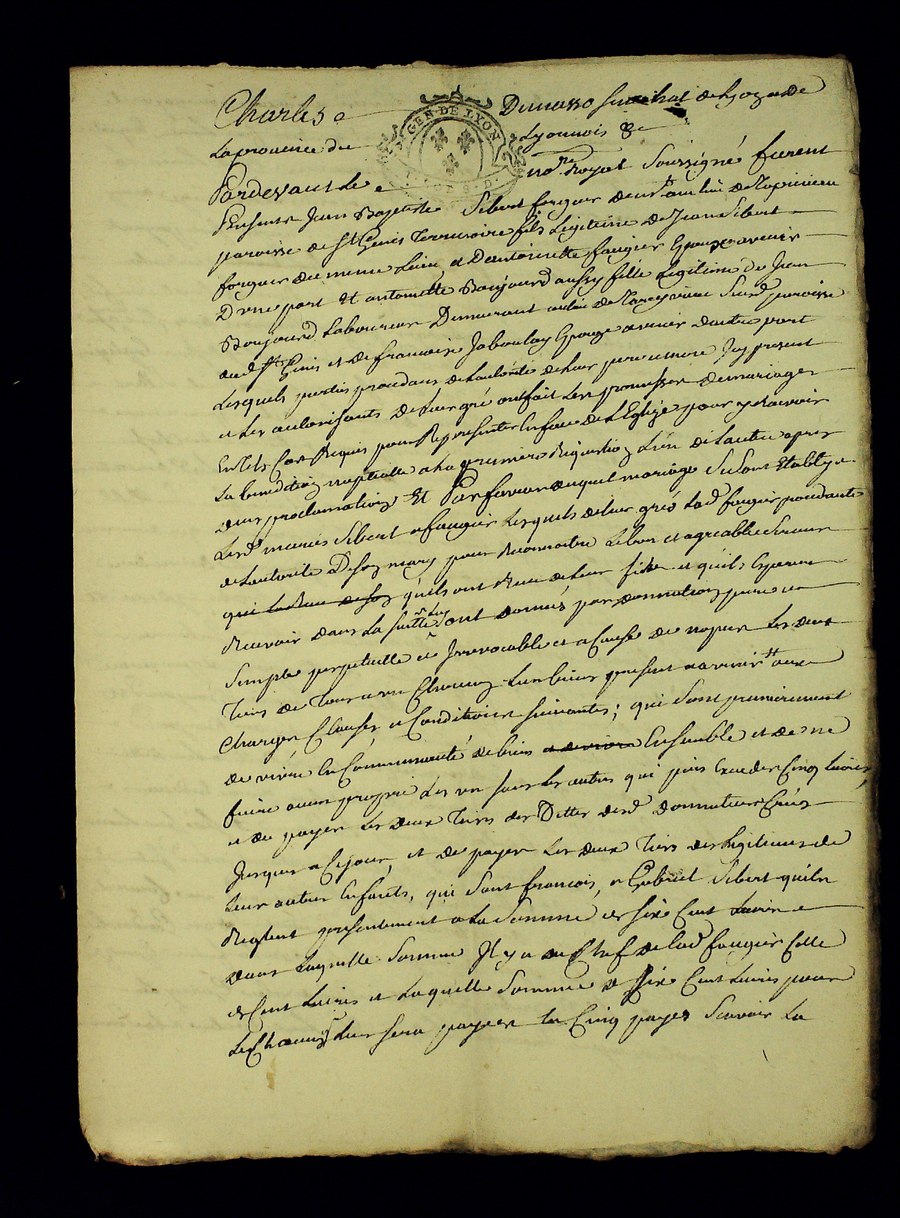 Charles Dumasso Senechal de Lyon & de
GEN. DE LYON
La province du Lyonnois &c
Pardevant Le no.re Royal Soussigné furent
Presents Jean Baptiste Sibert forgeur demeurt au lieu de
paroisse de St Genis Terrenoire fils Legitime de Jean Sibert
forgeur du meme Lieu et d'antoinette faugier Epoux avenir
D'une part Et antoinette Boujourd aussy fille Legitime de Jean
Boujourd Laboureur Demeurant au lieu de Susd. paroisse
dud. St Genis et de francoise Jaboulay Epouse avenir d'autre part
Lesquels parties procedans de L'autorité de leur pere et mere Icy present
et Les autorisants de leur gré ont fait Les promesses de mariage
En tels Cas Requis pour se Representer En face de L'Eglise pour y Recevoir
La benediction nuptialle a La premiere Requisition L'un de L'autre apres
deux proclamations Et En faveur duquel mariage Se Sont Etablys
Lesd. maries Sibert et faugier Lesquels de leur gré Lad. faugier procedante
de L'autorité De son mary pour Reconnoitre Les bon et agreables Services
qu'ils ont Reçu de Leur fils et qu'ils Esperent
Recevoir dans La suitte Luy ont donné par donnation pure et
Simple perpetuelle et Irrevocable et a Cause de nopces Les deux
Tiers de Tous et un Chacuns Leurs biens present et a venir aux
Charges Clauses et Conditions suivantes; qui sont premierement
de vivre En Communauté de biens et de vivre Ensemble et de ne
faire aucun propre Les uns sans Les autres qui puis Exceder Cinq Livres
et de payer Les deux Tiers des Dettes desd. donnateurs Créés
Jusques a Ce jour, et de payer Les deux Tiers des Legitimes de
Leur autres Enfants, qui sont francois, et Gabriel Sibert qu'ils
Reglent presentement a La Somme de Six Cent Livres
dans Laquelle Somme Il y a du Chef de Lad. faugier Celle
de Cent Livres et Laquelle Somme de Six Cent Livres pour
Chacun Leur sera payée En Cinq payes Scavoir La